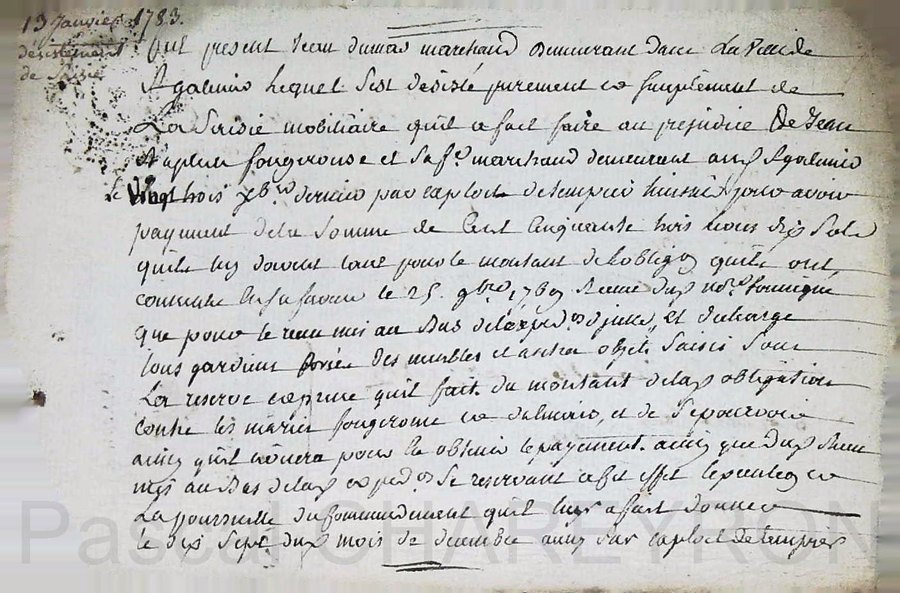 13 Janvier 1783.
désistement
de Saisie
fut présent Jean dumas marchand demeurant dans La Ville de
St galmier Lequel s'est désisté purement et simplement de
La Saisie mobiliaire qu'il a fait faire au préjudice De Jean
fougerouse et sa fe. marchand demeurant aud St galmier
Le Vingt trois Xbre dernier par exploit de tempier huissier pour avoir
payment de la Somme de Cent Cinquante trois livres dix Sols
qu'ils luy doivent tant pour le montant de l'obligon qu'ils ont
contracté en sa faveur le 25. 9bre 178 Receue dud nore
que pour le mis au Bas de l'expedon d'jcelle, Et decharge
tous gardiens des meubles et autres objets saisis sous
La reserve expresse qu'il fait du montant de lad obligation
contre les mariés fougerouse et dalmais, et de se pourvoir
ainsy qu'il avisera pour en obtenir le payement. ainsy que dud
mis au Bas de lad expedon se reservant a cet effet
La poursuitte du Commendement qu'il leur a fait donner
le dix Sept dud mois de decembre aussy par exploit de tempier
Pascal CHAREYRON